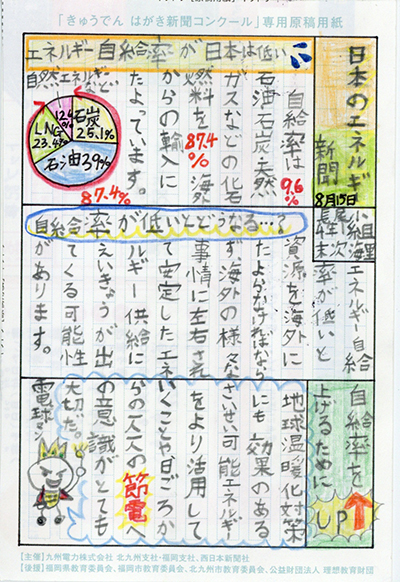 「きゅうでん はがき新聞コンクール」専用原稿用紙
日本のエネルギー
新聞
8月15日
エネルギー自給率が日本は低い
自給率は
9.6%
石油石炭天然
ガスなどの化石
燃料を87.4%海外
からの輸入に
たよっています。
自然エネルギーなど
12.6%
石炭
25.1%
LNG
23.4%
石油39%
87.4%
自給率が低いとどうなる…?
エネルギー自給
率が低いと
資源を海外に
たよらなければなら
ず、海外の様々な
事情に左右され
て安定したエネ
ルギー供給に
えいきょうが出
てくる可能性
があります。
自給率を
上げるために
UP
地球温暖化対策
にも効果のある
さいせい可能エネルギー
をより活用して
いくことや日ごろか
らの一人一人の節電へ
の意識がとても
大切だ。
電球マン
【主催】九州電力株式会社 北九州支社・福岡支社、西日本新聞社
【後援】福岡県教育委員会、福岡市教育委員会、北九州市教育委員会、公益財団法人 理想教育財団